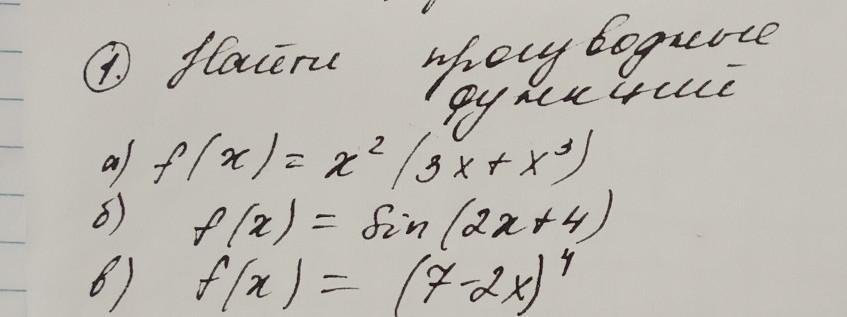 1. Найти производные
функций
а) f(x) = x² (3x + x³)
б) f(x) = Sin(2x+4)
в) f(x) = (7-2x)⁴